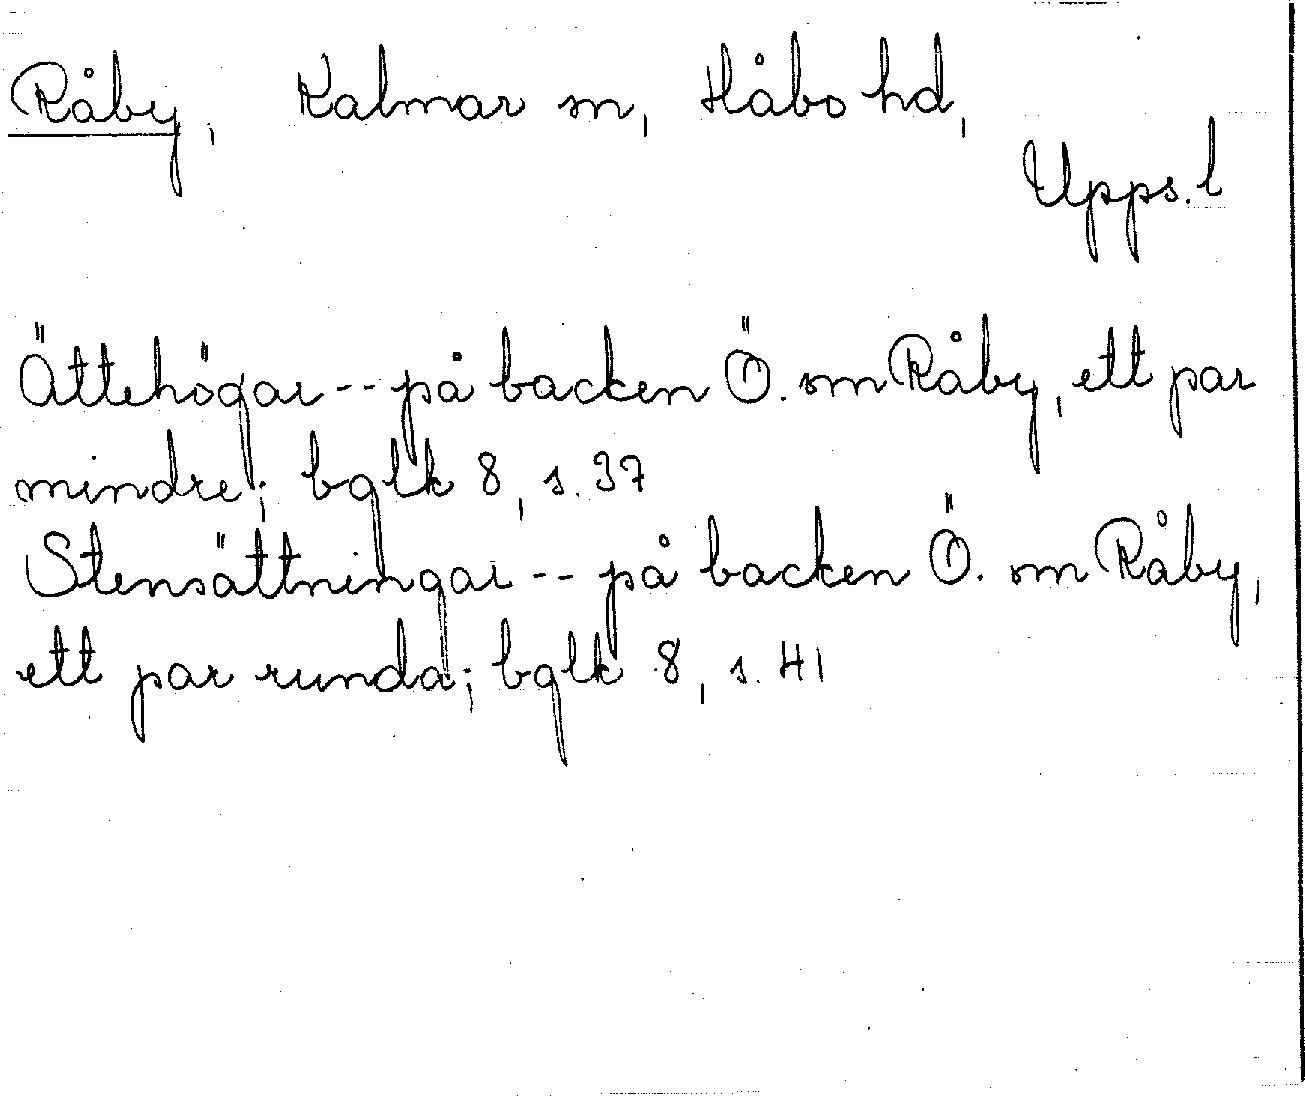 Råby, Kalmar sn, Håbo hd,
Upps. l
Ättehögar -- på backen Ö. om Råby, ett par
mindre; bglk 8, s. 37
Stensättningar -- på backen Ö. om Råby,
ett par runda; bglk 8, s. 41